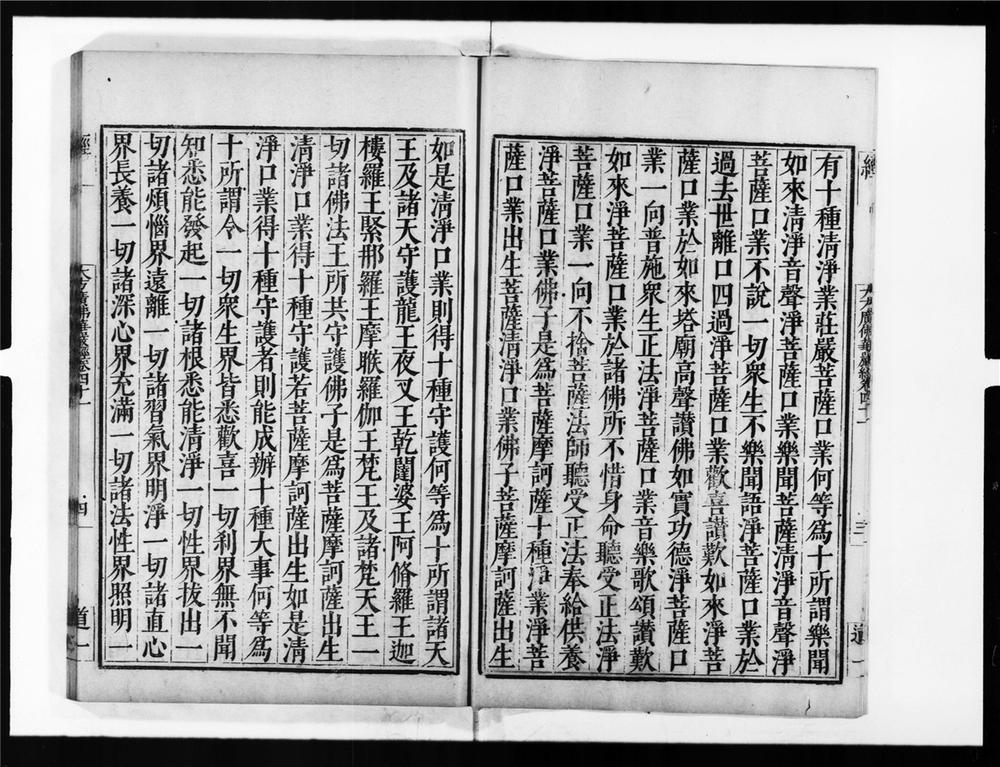 有十種清淨業莊嚴菩薩口業何等爲十所謂樂聞
如來清淨音聲淨菩薩口業樂聞菩薩清淨音聲淨
菩薩口業不說一切衆生不樂聞語淨菩薩口業於
過去世離口四過淨菩薩口業歡喜讃歎如來淨菩
薩口業於如來塔廟高聲讃佛如實功德淨菩薩口
業一向普施衆生正法淨菩薩口業音樂歌頌讃歎
如來淨菩薩口業於諸佛所不惜身命聽受正法淨
菩薩口業一向不捨菩薩法師聽受正法奉給供養
淨菩薩口業佛子是爲菩薩摩訶薩十種淨業淨菩
薩口業出生菩薩清淨口業佛子菩薩摩訶薩出生
如是清淨口業則得十種守護何等爲十所謂諸天
王及諸天守護龍王夜叉王乾闥婆王阿脩羅王迦
樓羅王緊那羅王摩睺羅伽王梵王及諸梵天王一
切諸佛法王所共守護佛子是爲菩薩摩訶薩出生
清淨口業得十種守護若菩薩摩訶薩出生如是清
淨口業得十種守護者則能成辦十種大事何等爲
十所謂令一切衆生界皆悉歡喜一切刹界無不聞
知悉能發起一切諸根悉能清淨一切性界拔出一
切諸煩惱界遠離一切諸習氣界明淨一切諸直心
界長養一切諸深心界充滿一切諸法性界照明一
經 大方廣佛華嚴經卷四十二 四 道一